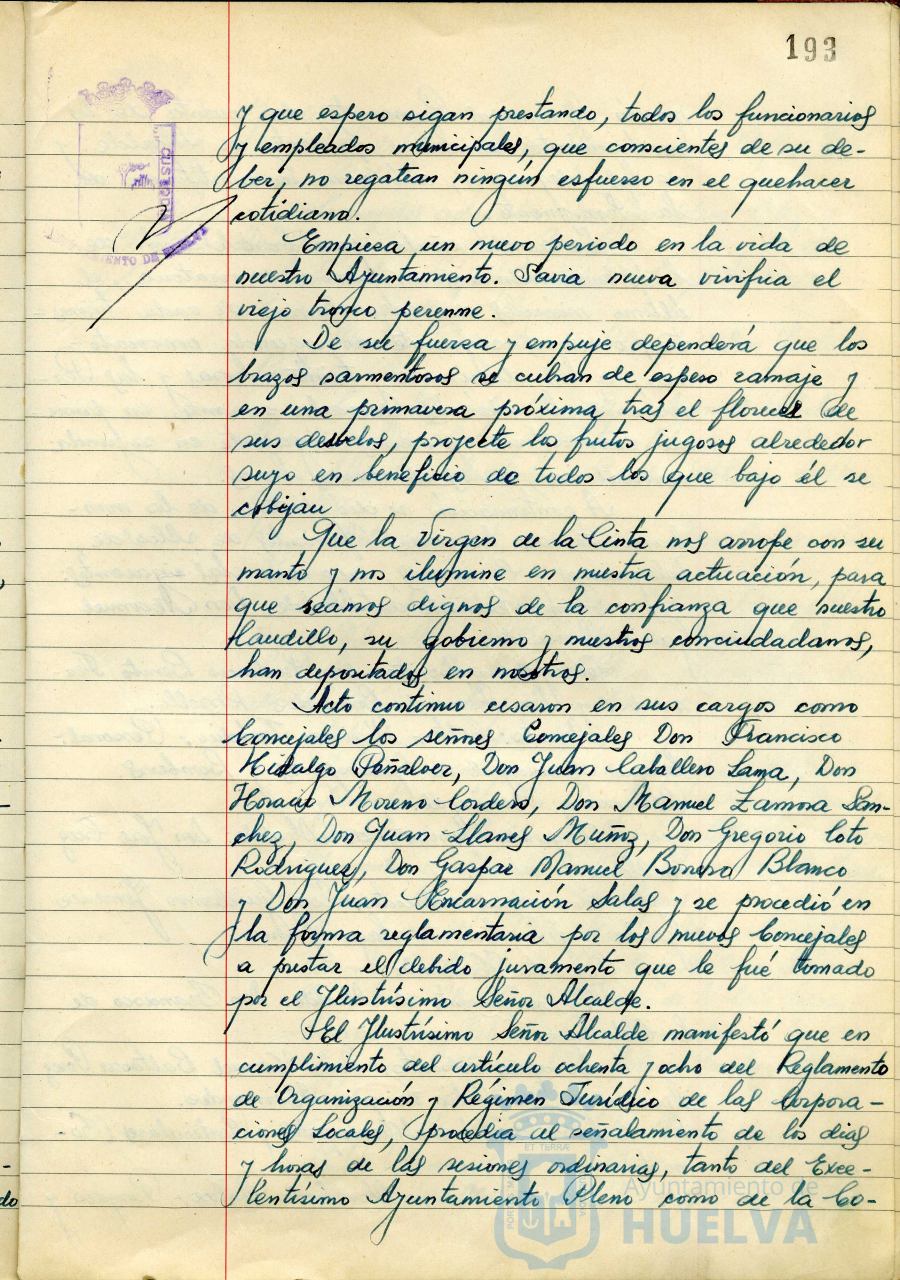 193
y que espero sigan prestando, todos los funcionarios
y empleados municipales, que conscientes de su de-
ber, no regatean ningún esfuerzo en el quehacer
cotidiano.
Empieza un nuevo periodo en la vida de
nuestro Ayuntamiento. Savia nueva vivifica el
viejo tronco perenne.
De su fuerza y empuje dependerá que los
brazos sarmentosos se cubran de espeso ramaje y
en una primavera próxima tras el florecer de
sus desvelos, proyecte los frutos jugosos alrededor
suyo en beneficio de todos los que bajo él se
cobijan
Que la Virgen de la Cinta nos arrope con su
manto y nos ilumine en nuestra actuación, para
que seamos dignos de la confianza que nuestro
Caudillo, su gobierno y nuestros conciudadanos,
han depositados en nosotros.
Acto continuo cesaron en sus cargos como
Concejales los señores Concejales Don Francisco
Hidalgo Peñalver, Don Juan Caballero Lama, Don
Horacio Moreno Cordero, Don Manuel Zamora San-
chez, Don Juan Llanes Muñoz, Don Gregorio Coto
Rodriguez, Don Gaspar Manuel Bonero Blanco
y Don Juan Encarnación Salas y se procedió en
la forma reglamentaria por los nuevos Concejales
a prestar el debido juramento que le fué tomado
por el Ilustrísimo Señor Alcalde.
El Ilustrísimo Señor Alcalde manifestó que en
cumplimiento del artículo ochenta y ocho del Reglamento
de Organización y Régimen Jurídico de las Corpora-
ciones Locales, procedia al señalamiento de los dias
y horas de las sesiones ordinarias, tanto del Exce-
lentísimo Ayuntamiento Pleno como de la Co-
Ayuntamiento de
HUELVA